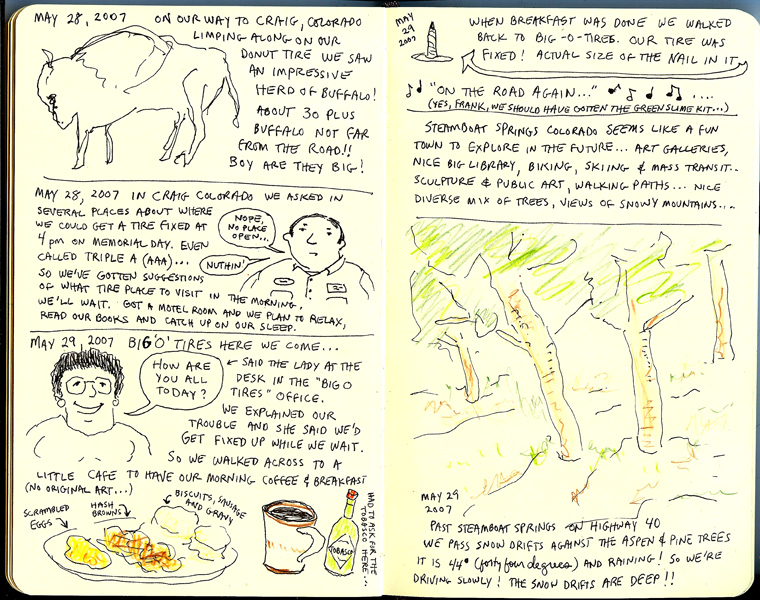 MAY 28, 2007 ON OUR WAY TO CRAIG, COLORADO
LIMPING ALONG ON OUR
DONUT TIRE WE SAW
AN IMPRESSIVE
HERD OF BUFFALO!
ABOUT 30 PLUS
BUFFALO NOT FAR
FROM THE ROAD!!
BOY ARE THEY BIG!
MAY 28, 2007 IN CRAIG COLORADO WE ASKED IN
SEVERAL PLACES ABOUT WHERE
WE COULD GET A TIRE FIXED AT
4 pm ON MEMORIAL DAY. EVEN
CALLED TRIPLE A (AAA)...
SO WE'VE GOTTEN SUGGESTIONS
OF WHAT TIRE PLACE TO VISIT IN THE MORNING.
WE'LL WAIT. GOT A MOTEL ROOM AND WE PLAN TO RELAX,
READ OUR BOOKS AND CATCH UP ON OUR SLEEP.
NOPE,
NO PLACE
OPEN...
NUTHIN'
MAY 29, 2007 BIG 'O' TIRES HERE WE COME...
HOW ARE
YOU ALL
TODAY?
← SAID THE LADY AT THE
DESK IN THE "BIG O
TIRES" OFFICE.
WE EXPLAINED OUR
TROUBLE AND SHE SAID WE'D
GET FIXED UP WHILE WE WAIT.
SO WE WALKED ACROSS TO A
LITTLE CAFE TO HAVE OUR MORNING COFFEE & BREAKFAST
(NO ORIGINAL ART...)
SCRAMBLED
EGGS
HASH
BROWNS
BISCUITS, SAUSAGE
AND GRAVY
TOBASCO
HAD TO ASK FOR THE
TOBASCO HERE...
MAY
29
2007
WHEN BREAKFAST WAS DONE WE WALKED
BACK TO BIG-O-TIRES. OUR TIRE WAS
FIXED! ACTUAL SIZE OF THE NAIL IN IT
♪♩ "ON THE ROAD AGAIN..." ♫ ♩ ♪ ♫ ....
(YES, FRANK, WE SHOULD HAVE GOTTEN THE GREEN SLIME KIT...)
STEAMBOAT SPRINGS COLORADO SEEMS LIKE A FUN
TOWN TO EXPLORE IN THE FUTURE... ART GALLERIES,
NICE BIG LIBRARY, BIKING, SKIING & MASS TRANSIT..
SCULPTURE & PUBLIC ART, WALKING PATHS... NICE
DIVERSE MIX OF TREES, VIEWS OF SNOWY MOUNTAINS....
MAY 29
2007
PAST STEAMBOAT SPRINGS ON HIGHWAY 40
WE PASS SNOW DRIFTS AGAINST THE ASPEN & PINE TREES
IT IS 44° (forty four degrees) AND RAINING! SO WE'RE
DRIVING SLOWLY! THE SNOW DRIFTS ARE DEEP!!